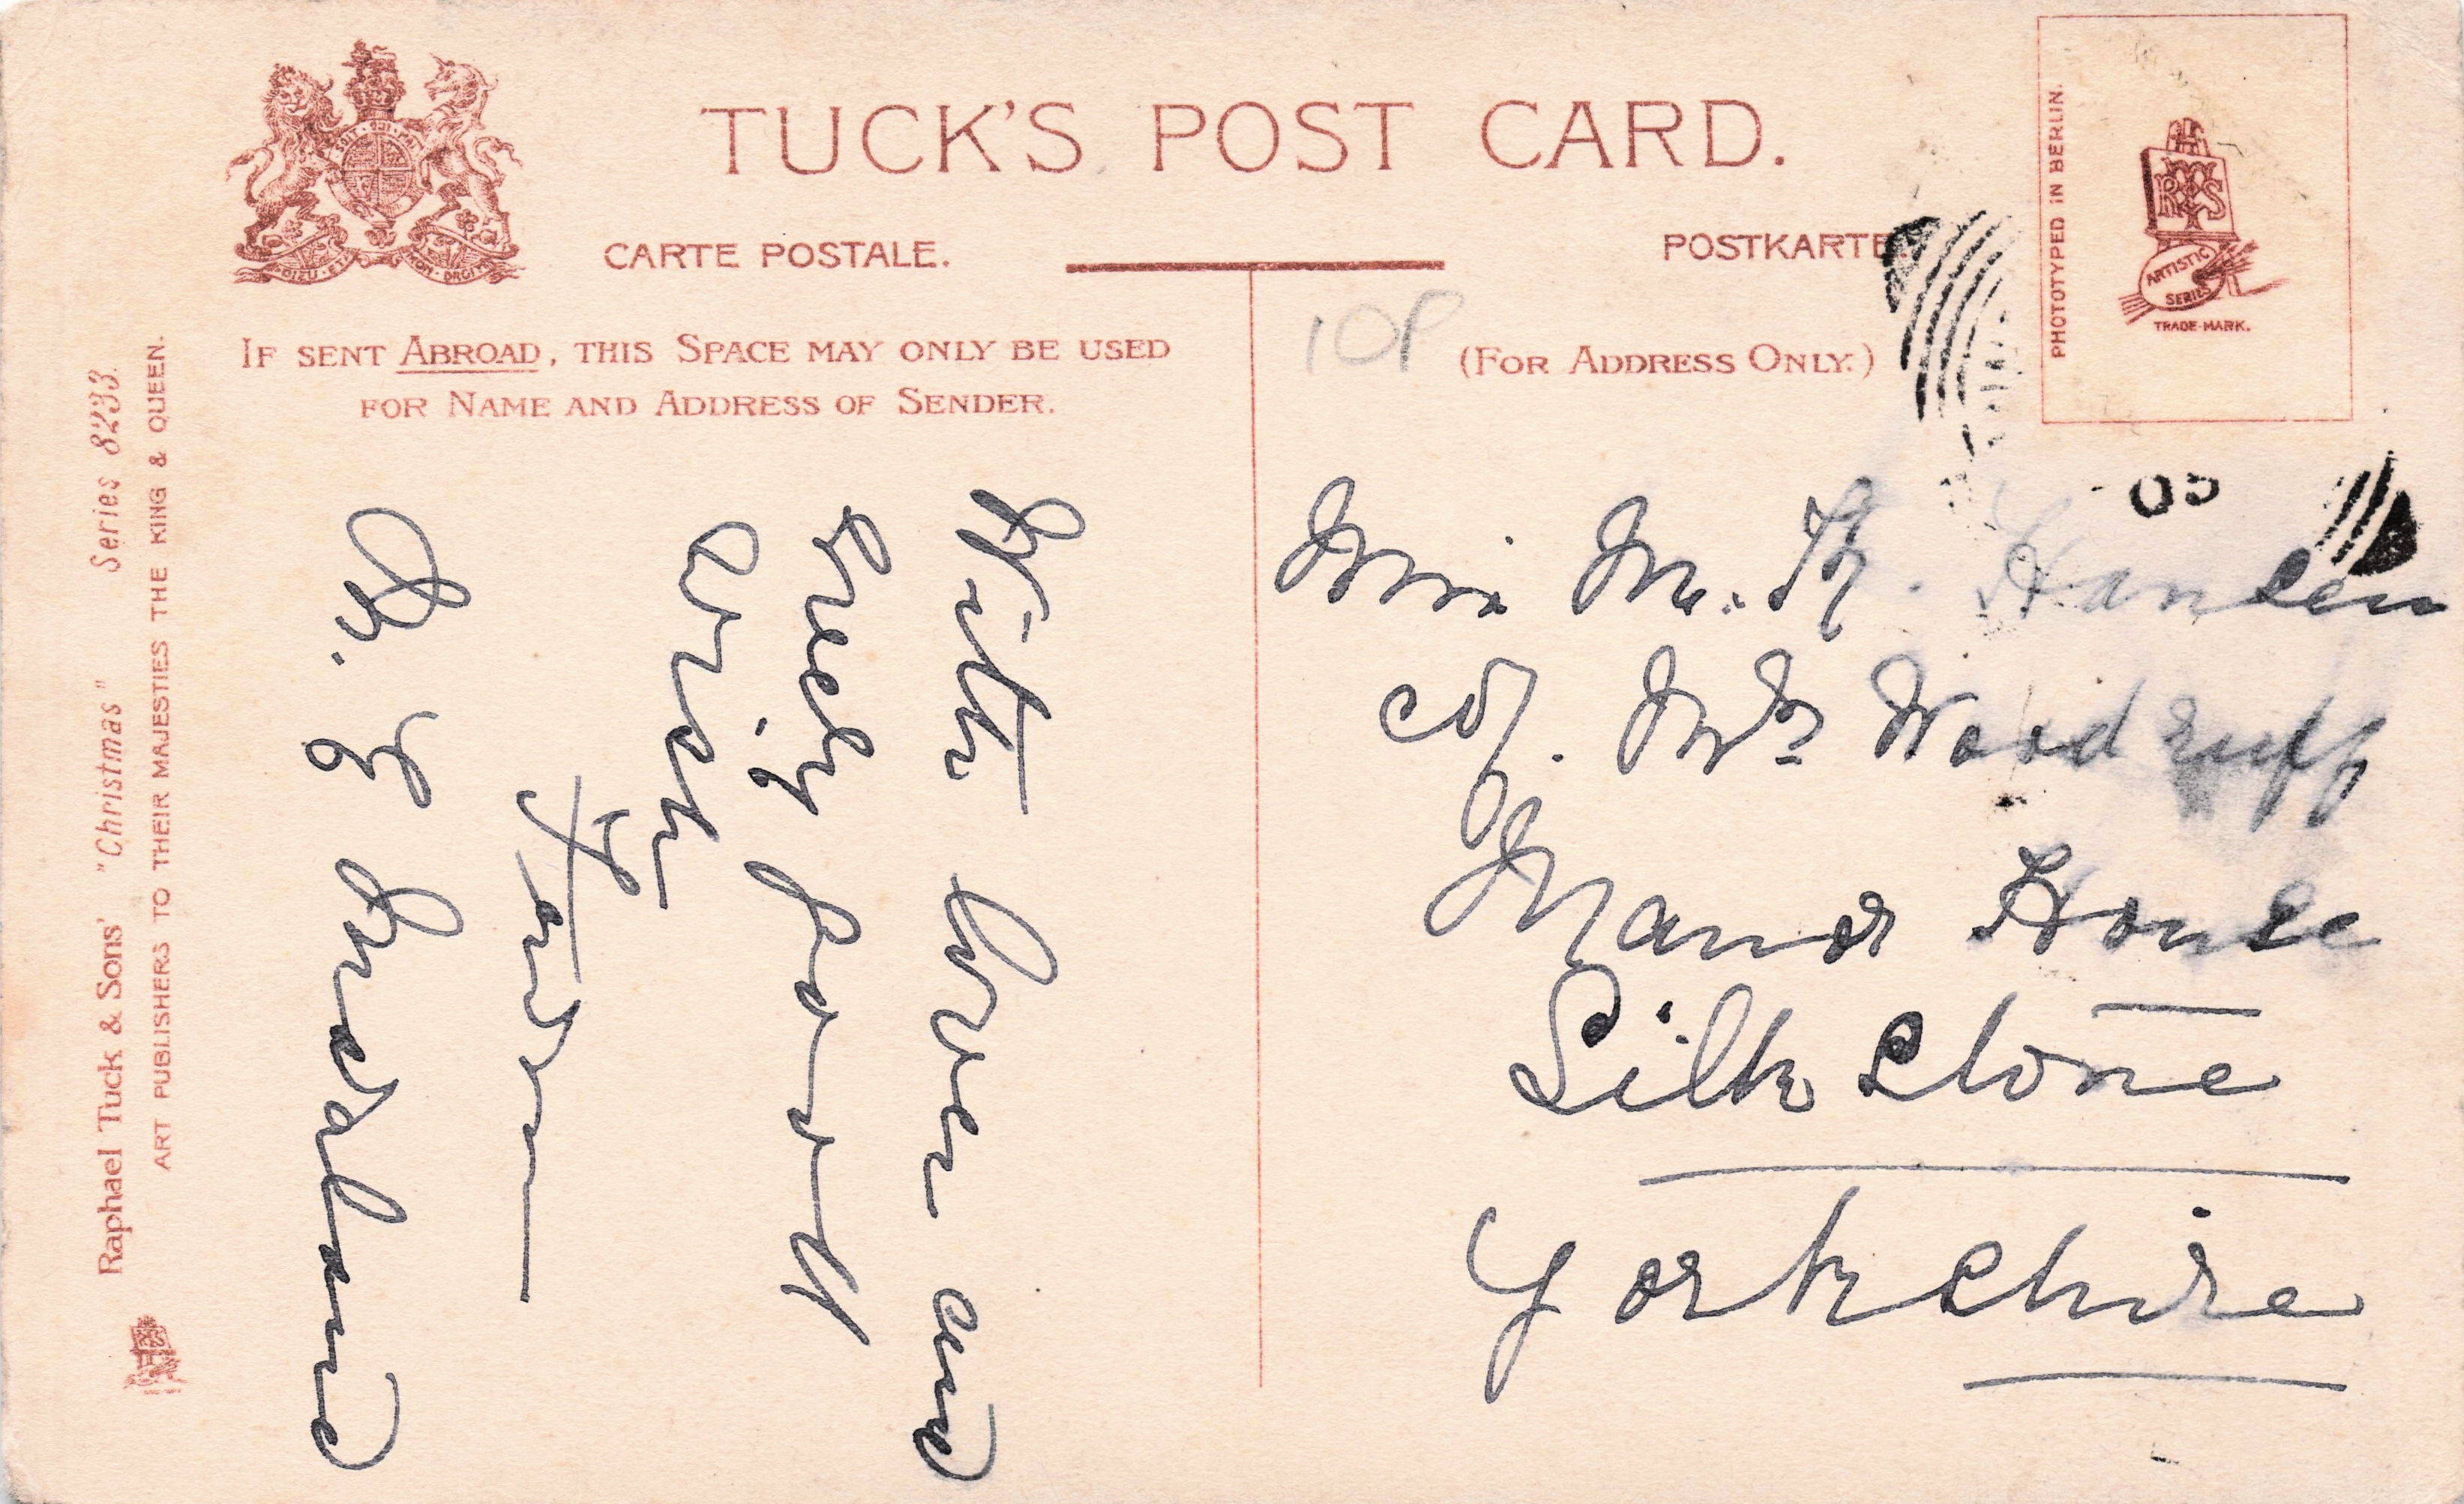 TUCK'S POST CARD.
CARTE POSTALE.
POSTKARTE.
IF SENT ABROAD, THIS SPACE MAY ONLY BE USED
FOR NAME AND ADDRESS OF SENDER.
10P
(FOR ADDRESS ONLY.)
PHOTOTYPED IN BERLIN.
ARTISTIC
SERIES
TRADE-MARK.
05
Raphael Tuck & Sons' "Christmas" Series 8233.
ART PUBLISHERS TO THEIR MAJESTIES THE KING & QUEEN.
With love and
every good
wish
from
Miss M. H. Hansen
c/o. Mrs Woodruff
Manor House
Silkstone
Yorkshire